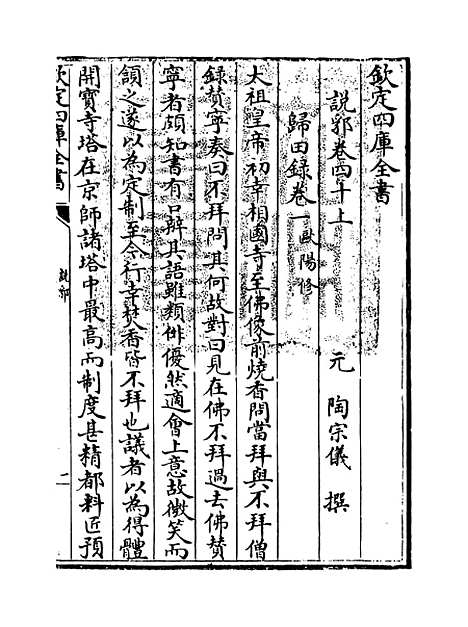 欽定四庫全書
說郛卷四十上
元 陶宗儀 撰
歸田錄卷一 歐陽修
太祖皇帝初幸相國寺至佛像前燒香問當拜與不拜僧
録贊寧奏曰不拜問其何故對曰見在佛不拜過去佛贊
寧者頗知書有口辯其語雖類俳優然適會上意故微笑而
頷之遂以為定制至今行幸焚香皆不拜也議者以為得體
開寶寺塔在京師諸塔中最高而制度甚精都料匠預
欽定四庫全書
說郛